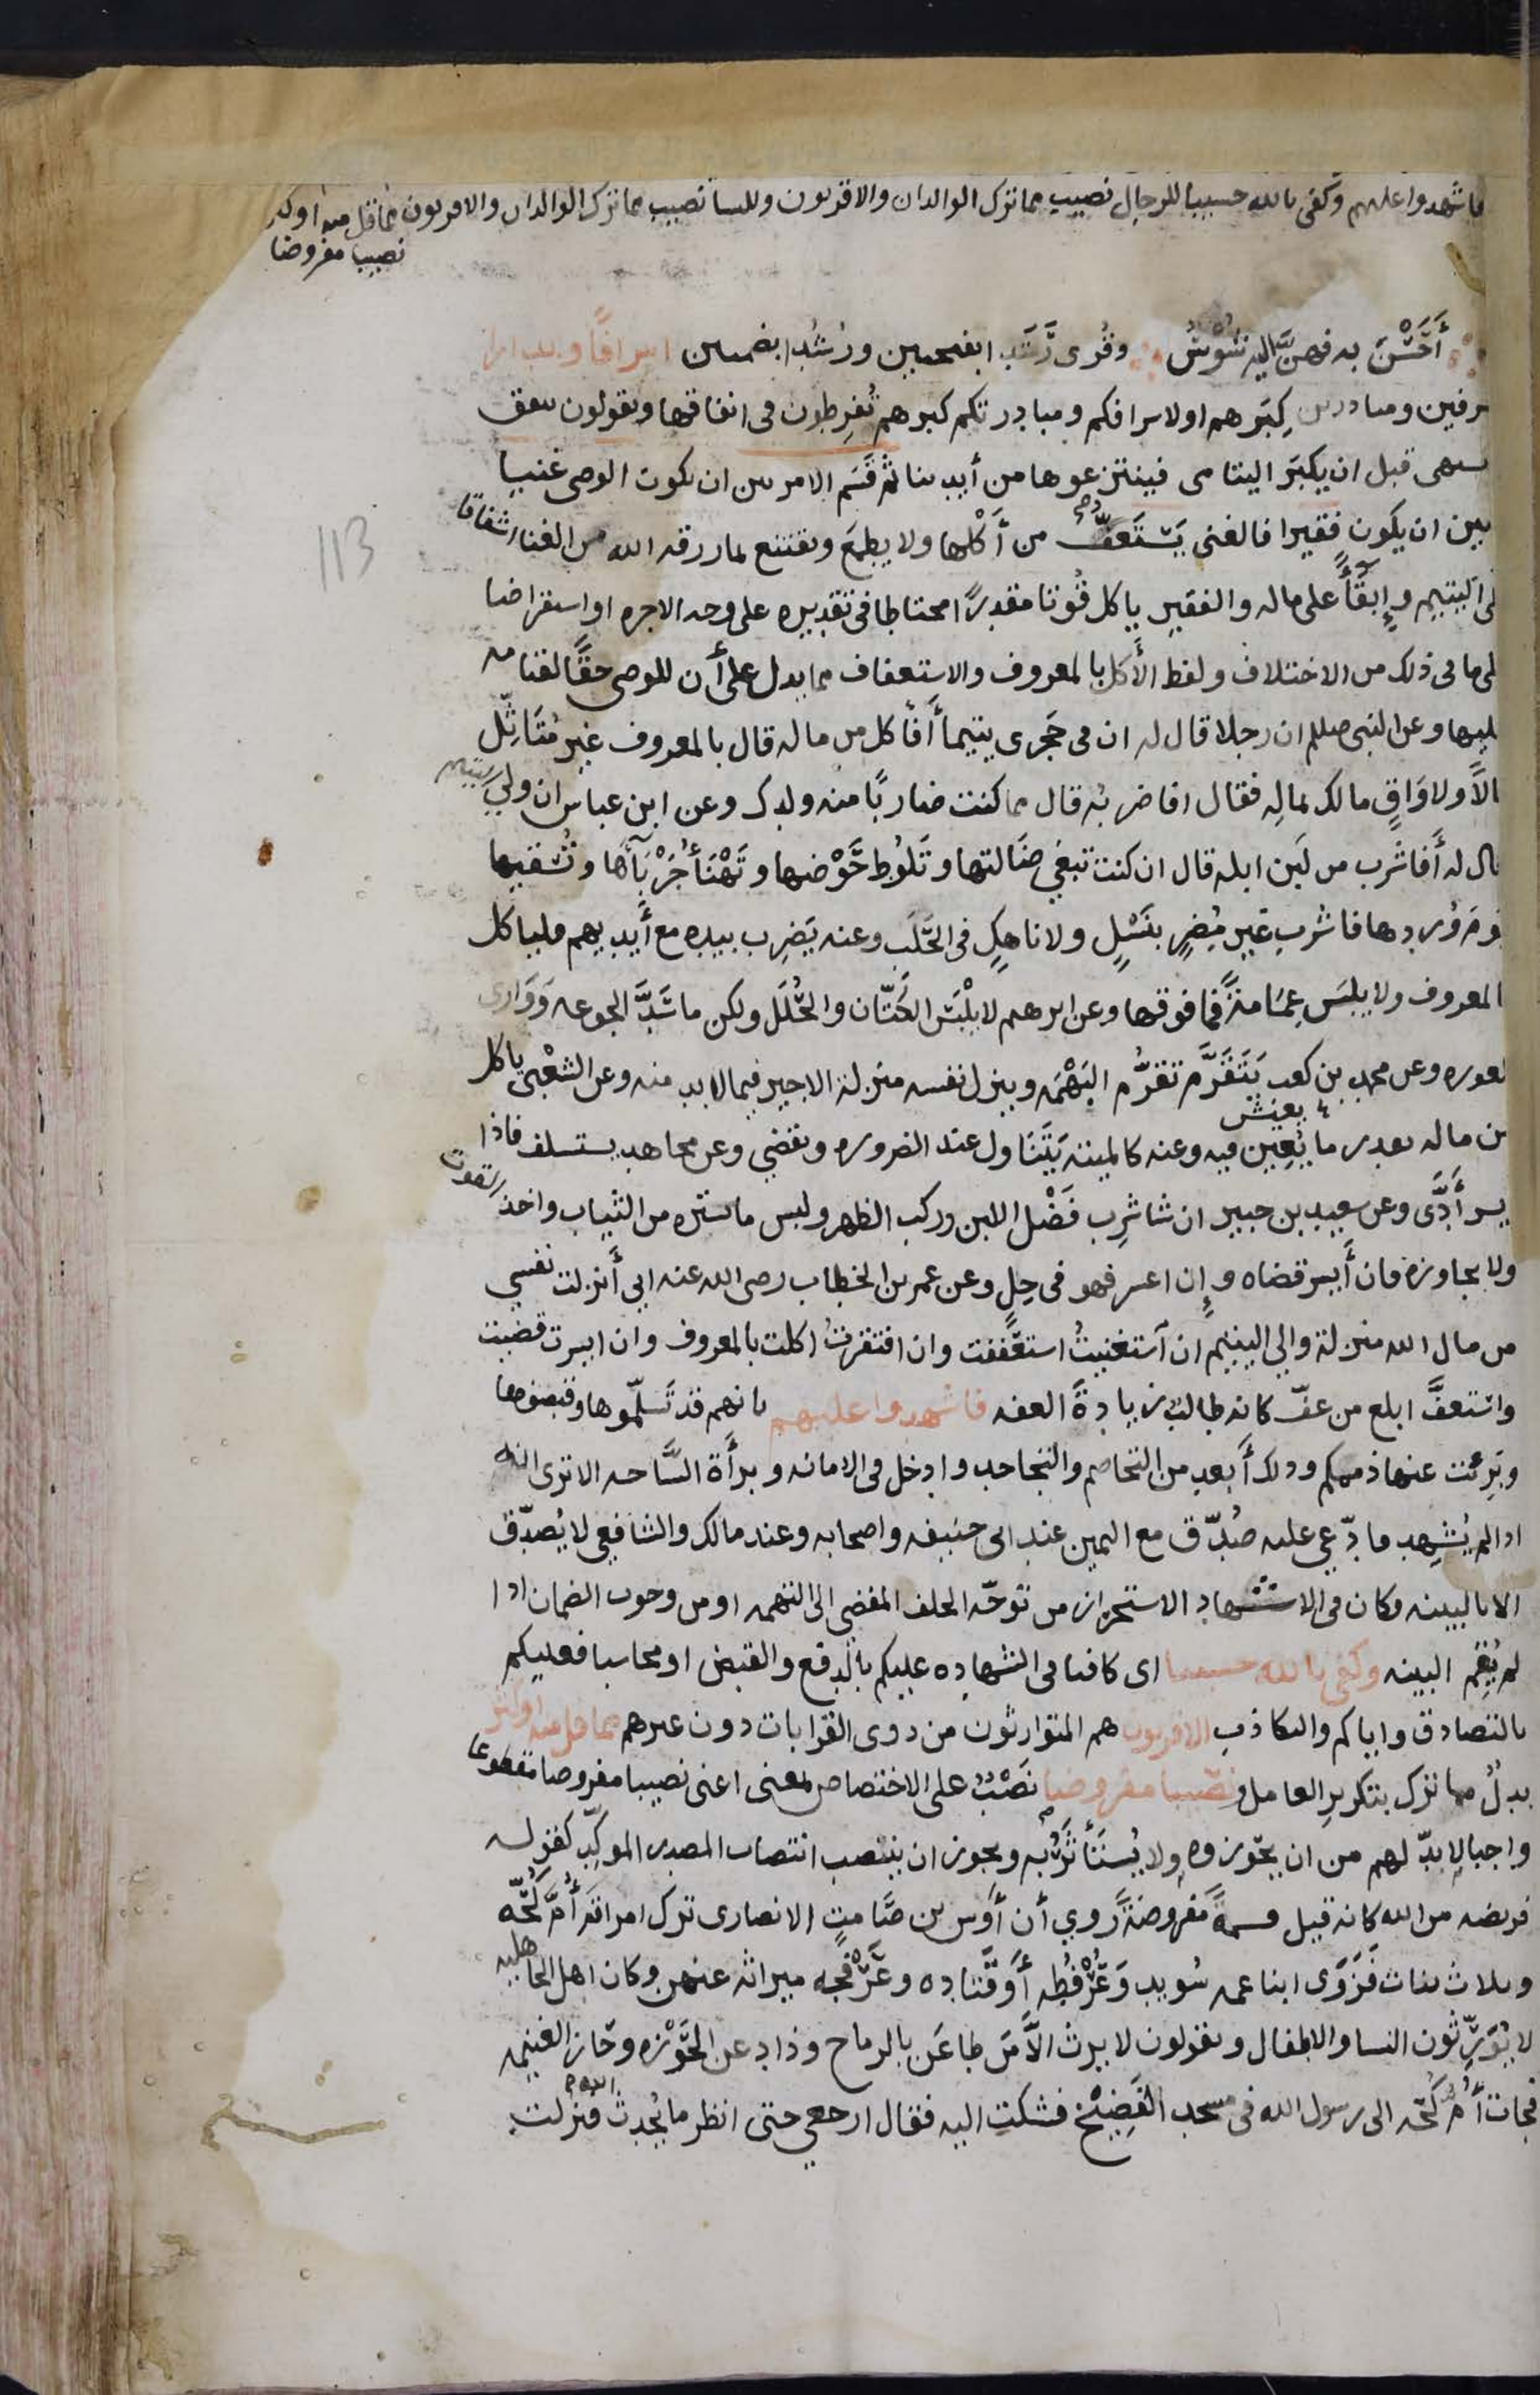 فاشهدوا عليهم وكفى بالله حسيبا للرجال نصيب مما ترك الوالدان والاقربون وللنسا نصيب مما ترك الوالدان والاقربون مما قل منه او كثر
نصيبا مفروضا
أَحَسْنَ به فهنَّ اليه شُوْسُ وقُرى رَشَدا بفتحتين ورُشُدا بضمتين اسرافًا وبدارا
رفين ومبادرين كِبَرهم او لاسرافكم ومبادرتكم كبرهم تُفرِطون فى انفاقها وتقولون ننفق
نشتهى قبل ان يكبَر اليتامى فينتزعوها من أيدينا ثم قَسَم الامر بين ان يكون الوصى غنيا
بين ان يكون فقيرا فالغنى يَسْتَعِفُّ من أَكْلها ولا يطمعَ ويقتنع بما رزقه الله من الغنا اشفاقا
لى اليتيم وإِبقَآءً على ماله والفقير ياكل قُوتا مقدرًا محتاطا فى تقديره على وجه الاجره او استقراضا
لى ما فى ذلك من الاختلاف ولفظ الأكل بالمعروف والاستعفاف مما يدل على أن للوصى حقًّا لقيامه
ليها وعن النبى صللم ان رجلا قال له ان فى حَجرى يتيما أَفآكل من ماله قال بالمعروف غير مُتَاَثِّل
الاً ولا وَاقٍ مالك بمالِه فقال افاضربُه قال مما كنت ضاربًا منه ولدك وعن ابن عباس ان ولي يتيم
ال له أَفاشرب من لَبن ابله قال ان كنت تبغي ضَالتها وتَلُوط حَوْضها وتَهْنَأُ جَرْبَآها وتُسقيها
وم وُردها فاشرب غير مُضِرٍ بنَسْلٍ ولا ناهِكٍ فى الحَلَب وعنه يَضرِب بيده مع أَيديهم فلياكل
المعروف ولا يلبَس عِمَامَةً فما فوقها وعن ابرهيم لا يلْبَس الكَتَّان والحُلَل ولكن ما سَدَّ الجوعه وَوَارى
لعوره وعن محمد بن كعب يَتَقَرَّم تقرُّم البَهْمَه وينزل نفسه منزلة الاجير فيما لا بد منه وعن الشعْبى ياكل
يعيش
ن ماله بقدر ما يُعِين فيه وعنه كالميتة يَتَنَاول عند الضروره ويقضي وعن مجاهد يستسلف فاذا
يسر أَدَّى وعن سعيد بن جبير ان شا شرِب فَضْل اللبن وركب الظهر ولبس ما يستره من الثياب واخذ القوت
ولا يجاوزه فان أَيسر قضاه وإِن اعسر فهو فى حِلٍ وعن عمر بن الخطاب رضى الله عنه اني أَنزلت نفسي
من مال الله منزلة والي اليتيم ان آستغنيتُ استعففت وان افتقرتُ اكلت بالمعروف وان ايسرت قضيت
واستعفَّ ابلع من عفّ كانه طالبُ زيادةَ العفه فاشهدوا عليهم بانهم قد تَسَلّموها وقبضوها
وبَرِئت عنها ذممكم وذلك أَبعد من التخاصم والتجاحد وادخل فى الامانه وبرأَة السَّاحه الا ترى انه
اذا لم يُشهِد فادّعي عليه صُدِّق مع اليمين عند ابى حنيفه واصحابه وعند مالك والشافعي لا يُصدّق
الا بالبينه فكان فى الاستشهاد الاستحراز من توجّه الحلف المفضى الى التهمه او من وجوب الضمان اذا
لم يُقِم البينه وكفى بالله حسيبا اى كافيا فى الشهاده عليكم بالدفع والقبض او محاسبا فعليكم
بالتصادق واياكم والتكاذب الاقربون هم المتوارثون من ذوى القرابات دون غيرهم مما قل منه او كثر
بدلُ مما ترك بتكرير العامل ونصيبا مفروضا نَصْبُ على الاختصاص بمعنى اعنى نصيبا مفروضا مقطوعا
واجبا لا بدّ لهم من ان يحّوزوه ولا يُستَأثَرُ به ويجوز ان ينتصب انتصاب المصدر الموكِّد كقوله
فريضه من الله كانه قيل قسمةً مفروضةً رُوي أن أَوس بن صَامتٍ الانصارى ترك امراتَه أُمَّ كُحَّه
وثلاث بنات فَزَوَى ابنا عمه سُويد وَعُرْفُطه أَو قَتاده وعَرْفَجه ميراثه عنهن وكان اهل الجاهليه
لا يُوَرِّثون النسا والاطفال ويقولون لا يرث الاَّ مَن طاعَن بالرماح وذاد عن الحَوْزه وحَاز الغنيمه
فجات أُمُّ كُحَّه الى رسول الله فى مسجد الفَضِيْخ فشكت اليه فقال ارجعي حتى انظر ما يُحدِث الله فنزلت
113